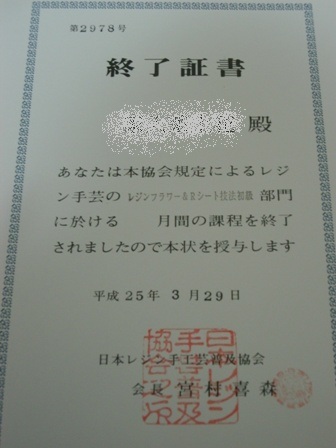 第2978号
終了証書
殿
あなたは本協会規定によるレジ
ン手芸の レジンフラワー&Rシート技法初級 部門
に於ける 月間の課程を終了
されましたので本状を授与します
平成25年3月29日
日本レジン手工芸普及協会
会長 宮村喜森